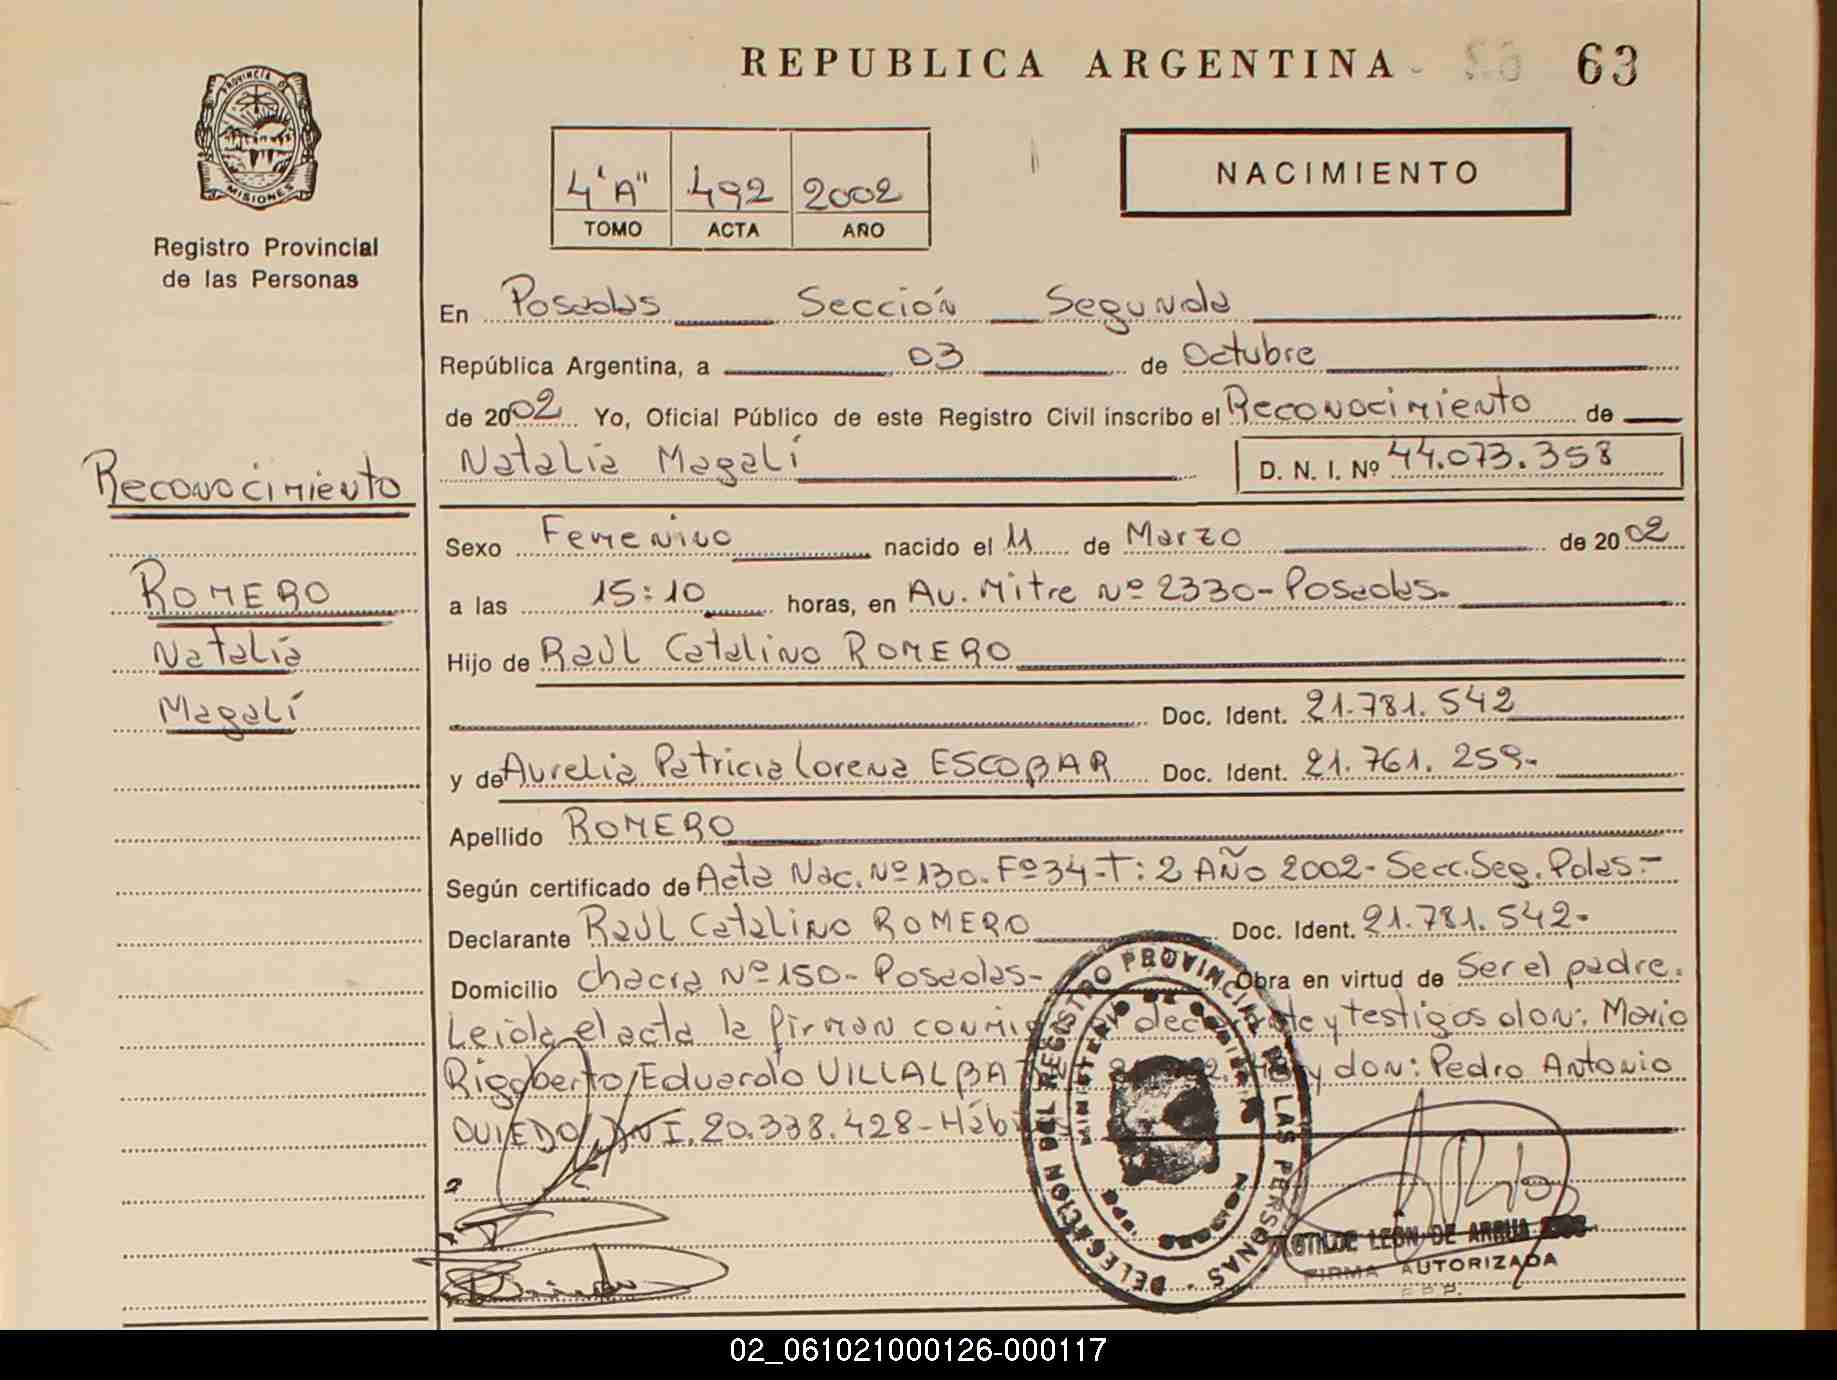 REPUBLICA ARGENTINA
63
PROVINCIA DE
MISIONES
Registro Provincial
de las Personas
4 "A" 492 2002
TOMO ACTA AÑO
NACIMIENTO
En Posadas Sección Segunda
República Argentina, a 03 de Octubre
de 2002 Yo, Oficial Público de este Registro Civil inscribo el Reconocimiento de
Natalia Magalí D. N. I. Nº 44.073.358
Reconocimiento
ROMERO
Natalia
Magalí
Sexo Femenino nacido el 11 de Marzo de 2002
a las 15:10 horas, en Av. Mitre Nº 2330-Posadas-
Hijo de Raúl Catalino ROMERO
Doc. Ident. 21.781.542
y de Aurelia Patricia Lorena ESCOBAR Doc. Ident. 21.761.259-
Apellido ROMERO
Según certificado de Acta Nac. Nº 130. Fº 34-T: 2 AÑO 2002- Secc. Seg. Pdas.-
Declarante Raúl Catalino ROMERO Doc. Ident. 21.781.542-
Domicilio chacra Nº 150- Posadas- Obra en virtud de Ser el padre.
Leida el acta la firman y testigos don: Mario
Rigoberto Eduardo VILLALBA y don: Pedro Antonio
OVIEDO DNI. 20.338.428-
DELEGACION DEL REGISTRO PROVINCIAL DE LAS PERSONAS
MINISTERIO DE GOBIERNO
CLOTILDE LEÓN DE ARRUA
FIRMA AUTORIZADA
02_061021000126-000117